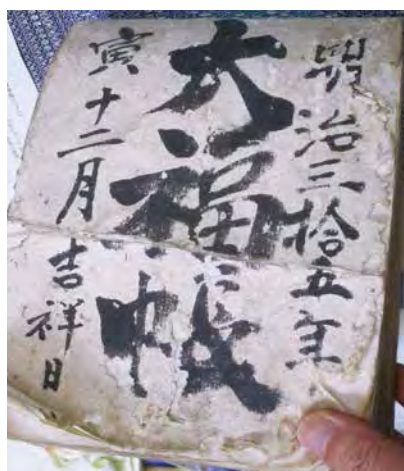 明治三拾五年
大福帳
寅十二月吉祥日